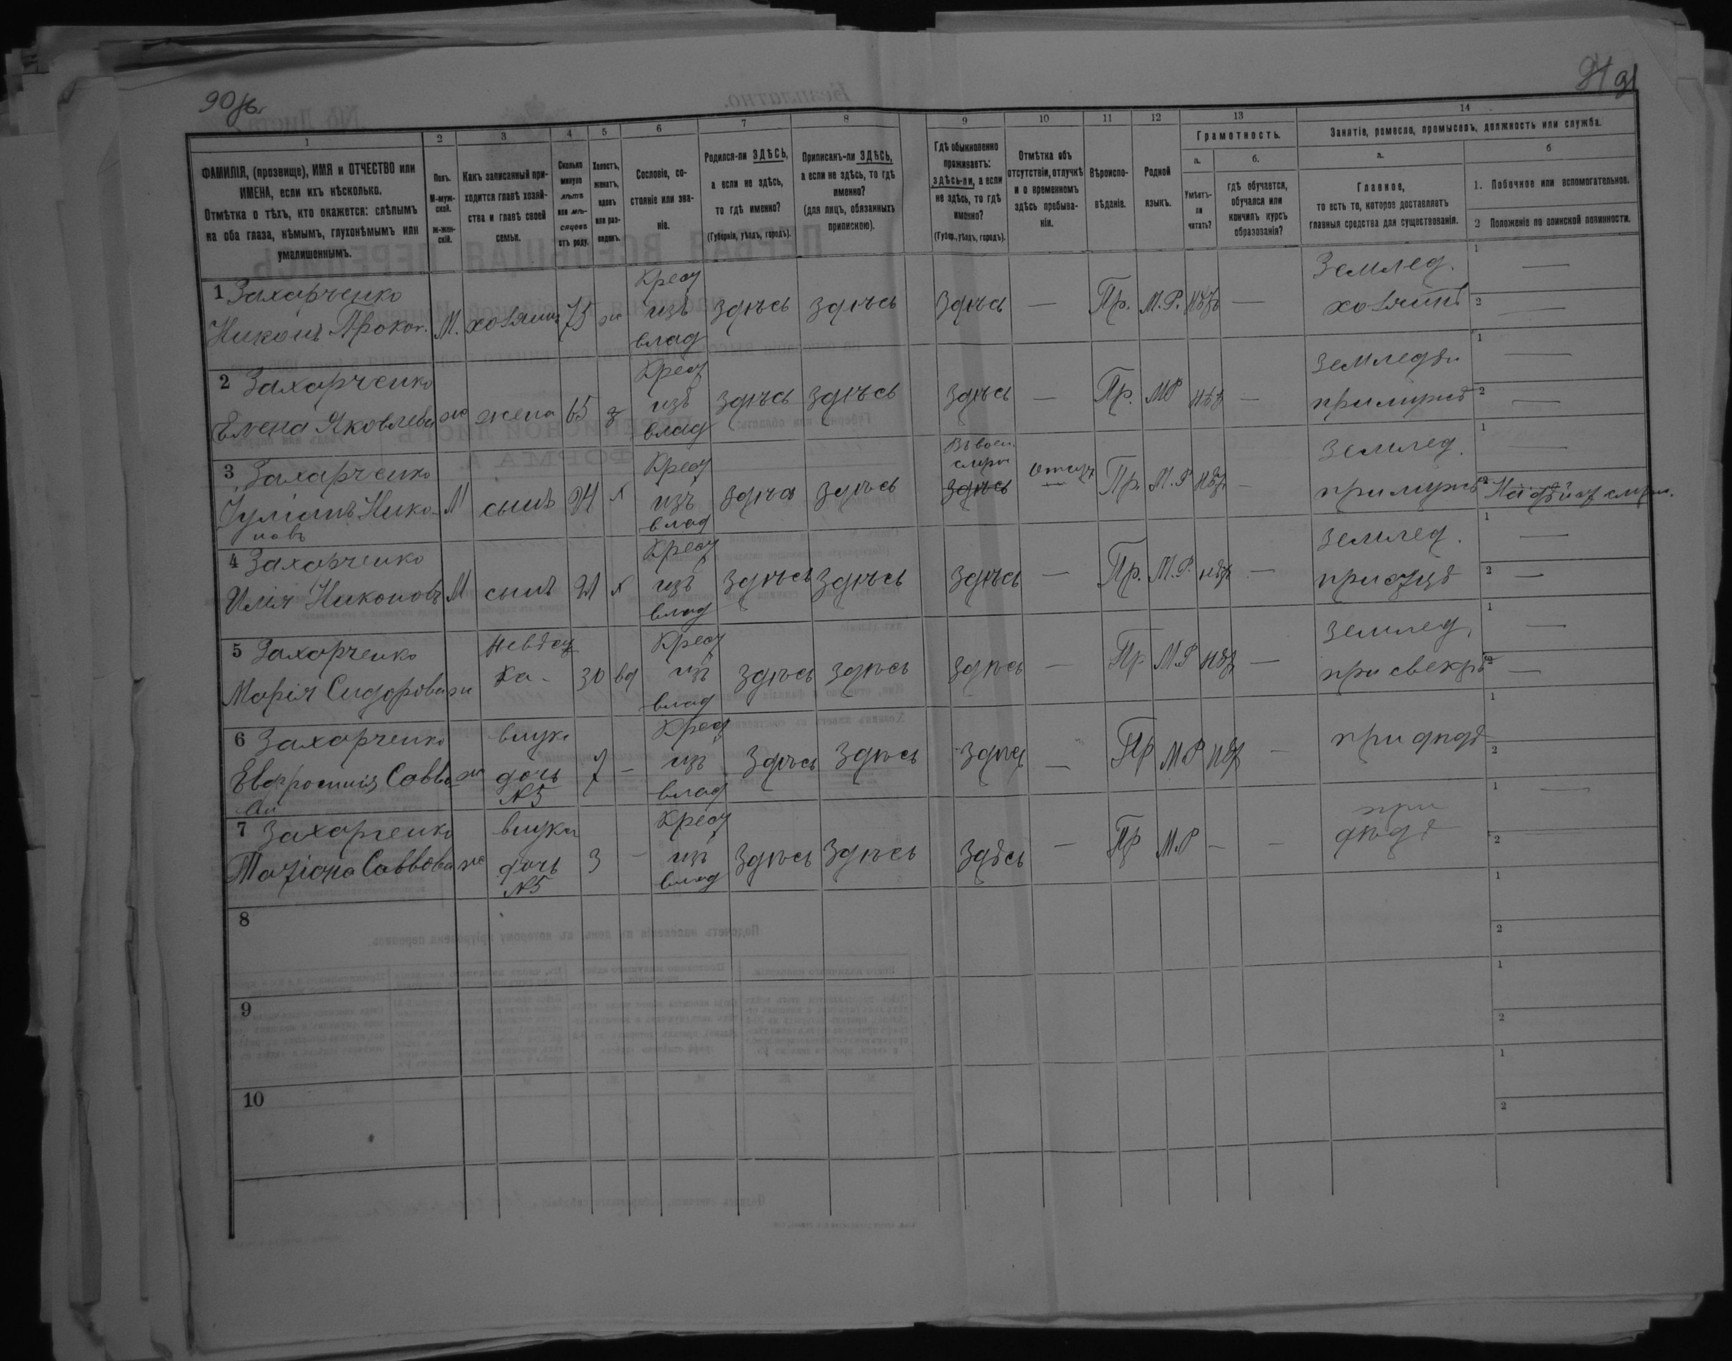 90об.
91 91
1
2
3
4
5
6
7
8
9
10
11
12
13
14
ФАМИЛІЯ, (прозвище), ИМЯ и ОТЧЕСТВО или ИМЕНА, если ихъ нѣсколько.
Отмѣтка о тѣхъ, кто окажется: слѣпымъ на оба глаза, нѣмымъ, глухонѣмымъ или умалишеннымъ.
Полъ. М-муж-ской. Ж-жен-скій.
Какъ записанный при-ходится главѣ хозяй-ства и главѣ своей семьи.
Сколько минуло лѣтъ или мѣ-сяцевъ отъ роду.
Холостъ, женатъ, вдовъ или раз-веденъ.
Сословіе, со-стояніе или зва-ніе.
Родился-ли ЗДѢСЬ, а если не здѣсь, то гдѣ именно?
(Губернія, уѣздъ, городъ).
Приписанъ-ли ЗДѢСЬ, а если не здѣсь, то гдѣ именно?
(для лицъ, обязанныхъ припискою).
Гдѣ обыкновенно проживаетъ: здѣсь-ли, а если не здѣсь, то гдѣ именно?
(Губер., уѣздъ, городъ).
Отмѣтка объ отсутствіи, отлучкѣ и о временномъ здѣсь пребыва-ніи.
Вѣроиспо-вѣданіе.
Родной языкъ.
Грамотность.
а.
Умѣетъ-ли читать?
б.
гдѣ обучается, обучался или кончилъ курсъ образованія?
Занятіе, ремесло, промыселъ, должность или служба.
а.
Главное,
то есть то, которое доставляетъ главныя средства для существованія.
б
1. Побочное или вспомогательное.
2 Положеніе по воинской повинности.
1 Захарченко
Никонъ Прокоп. М. хозяинъ 75 ж Крест изъ влад здѣсь здѣсь здѣсь — Пр. М.Р. нѣтъ — Землед. хозяинъ 1 — 2 —
2 Захарченко
Елена Яковлева ж жена 65 з Крест изъ влад здѣсь здѣсь здѣсь — Пр. МР нѣт — Землед. при мужѣ 1 — 2 —
3 Захарченко
Нико-новъ М сынъ 24 х Крест изъ влад здѣсь здѣсь здѣсь Пр. М.Р нѣт — Землед. 1 2
4 Захарченко
Илія Никоновъ М сынъ 21 х Крест изъ влад здѣсь здѣсь здѣсь — Пр. М.Р. нѣт — Землед. при отцѣ 1 — 2 —
5 Захарченко
Марія Сидорова ж Невѣст ка 30 вд Крест изъ влад здѣсь здѣсь здѣсь — Пр М.Р нѣт — Землед. при свекрѣ 1 — 2 —
6 Захарченко
Евфросинія Савво ва ж внука дочь №5 7 — Крест изъ влад здѣсь здѣсь здѣсь — Пр М Р нѣт — при дѣдѣ 1 2
7 Захарченко
Татіана Саввова ж внука дочь №5 3 — Крест изъ влад здѣсь здѣсь здѣсь — Пр М.Р — — при дѣдѣ 1 — 2
8 1 2
9 1 2
10 1 2